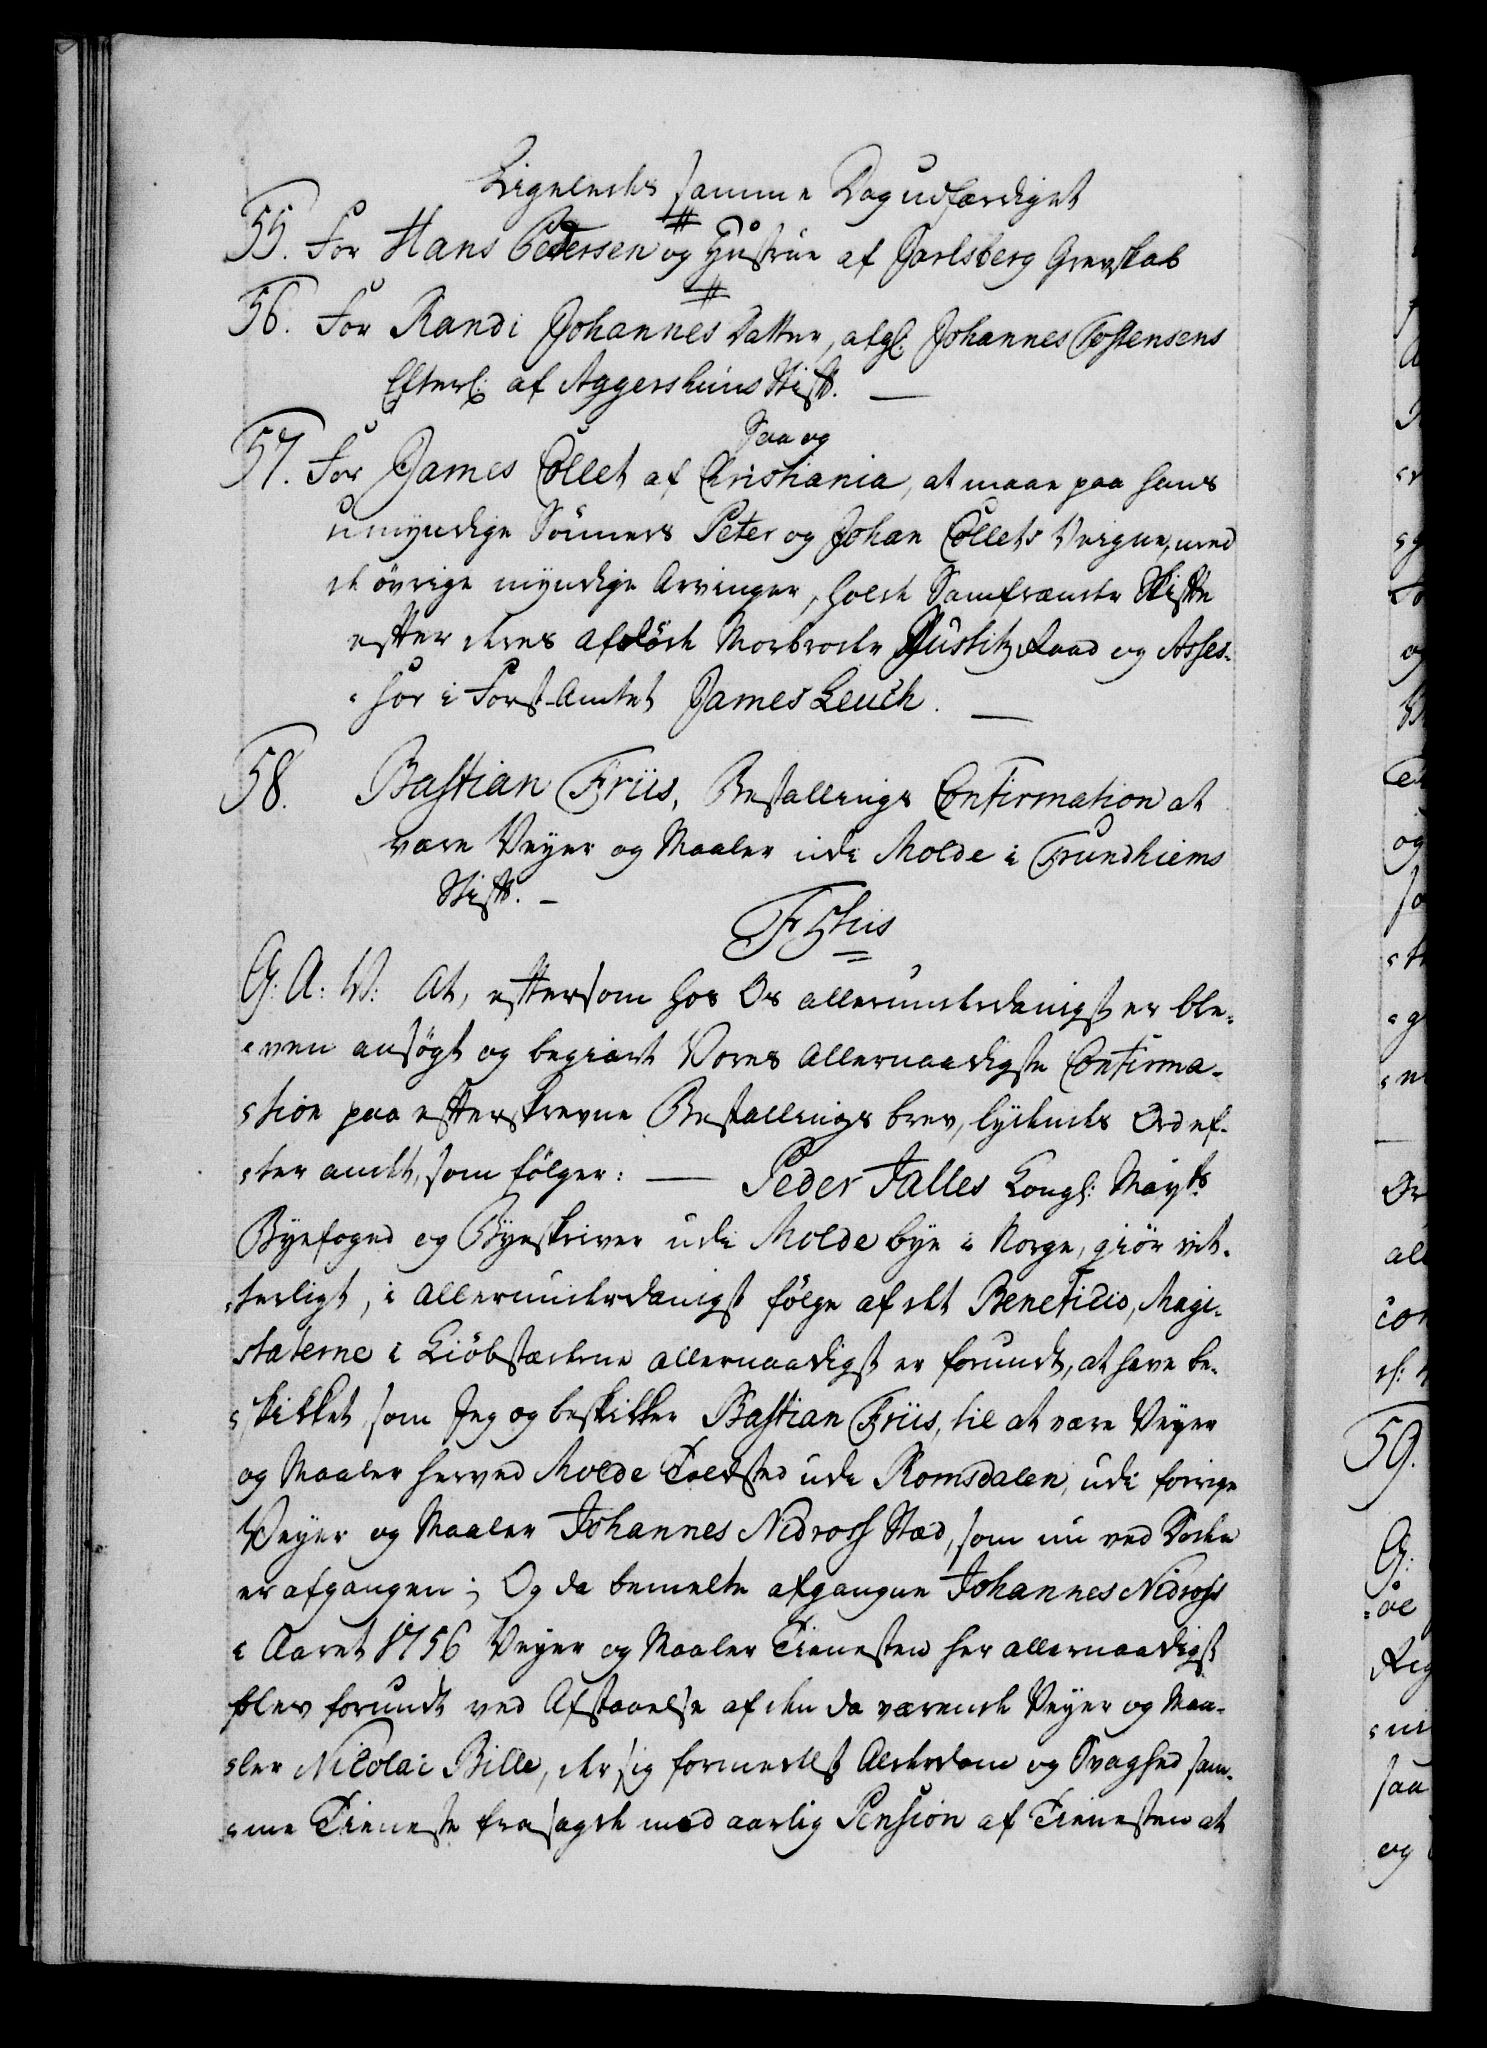 Ligeledes samme Dag udfærdiget
55. For Hans Pedersen og Hustrue af Jarlsberg Grevskab
56. For Randi Johannes Datter, afg: Johannes Tostensens
Efterl: af Aggershuus Stift. —
Saa og
57. For James Collet af Christiania, at maae paa hans
umyndige Sönners Peter og Johan Collets Veigne, med
de övrige myndige Arvinger, holde Samfrænde Skifte
efter deres afdöde Morbroder Justitz Raad og Asses-
sor i Forst-Amtet James Leuch. —
58. Bastian Friis, Bestallings Confirmation at
være Veyer og Maaler udi Molde i Trundhiems
Stift. —
F 5tus
G: A: V: At, eftersom hos Os allerunderdanigst er ble-
ven ansögt og begiært Vores allernaadigste Confirma-
tion paa efterskrevne Bestallings brev, lydende Ord ef-
ter andet, som fölger: — Peder Falles Kongl: Mayts
Byefoged og Byeskriver udi Molde bye i Norge, giör vit-
terligt, i allerunderdanigst fölge af det Beneficio, Magi-
straterne i Kiöbstæderne allernaadigst er forundt, at have be-
skikket, som Jeg og beskikker Bastian Friis, til at være Veyer
og Maaler herved Molde Toldsted udi Romsdalen, udi forrige
Veyer og Maaler Johannes Nidross Stæd, som nu ved Döden
er afgangen; Og da bemelte afgangne Johannes Nidross
i Aaret 1756 Veyer og Maaler Tienesten her allernaadigst
blev forundt ved Afstaaelse af den da værende Veyer og Maa-
ler Nicolai Bille, der sig formedelst Alderdom og Svaghed sam-
me Tieneste frasagde med aarlig Pension af Tienesten at
59.